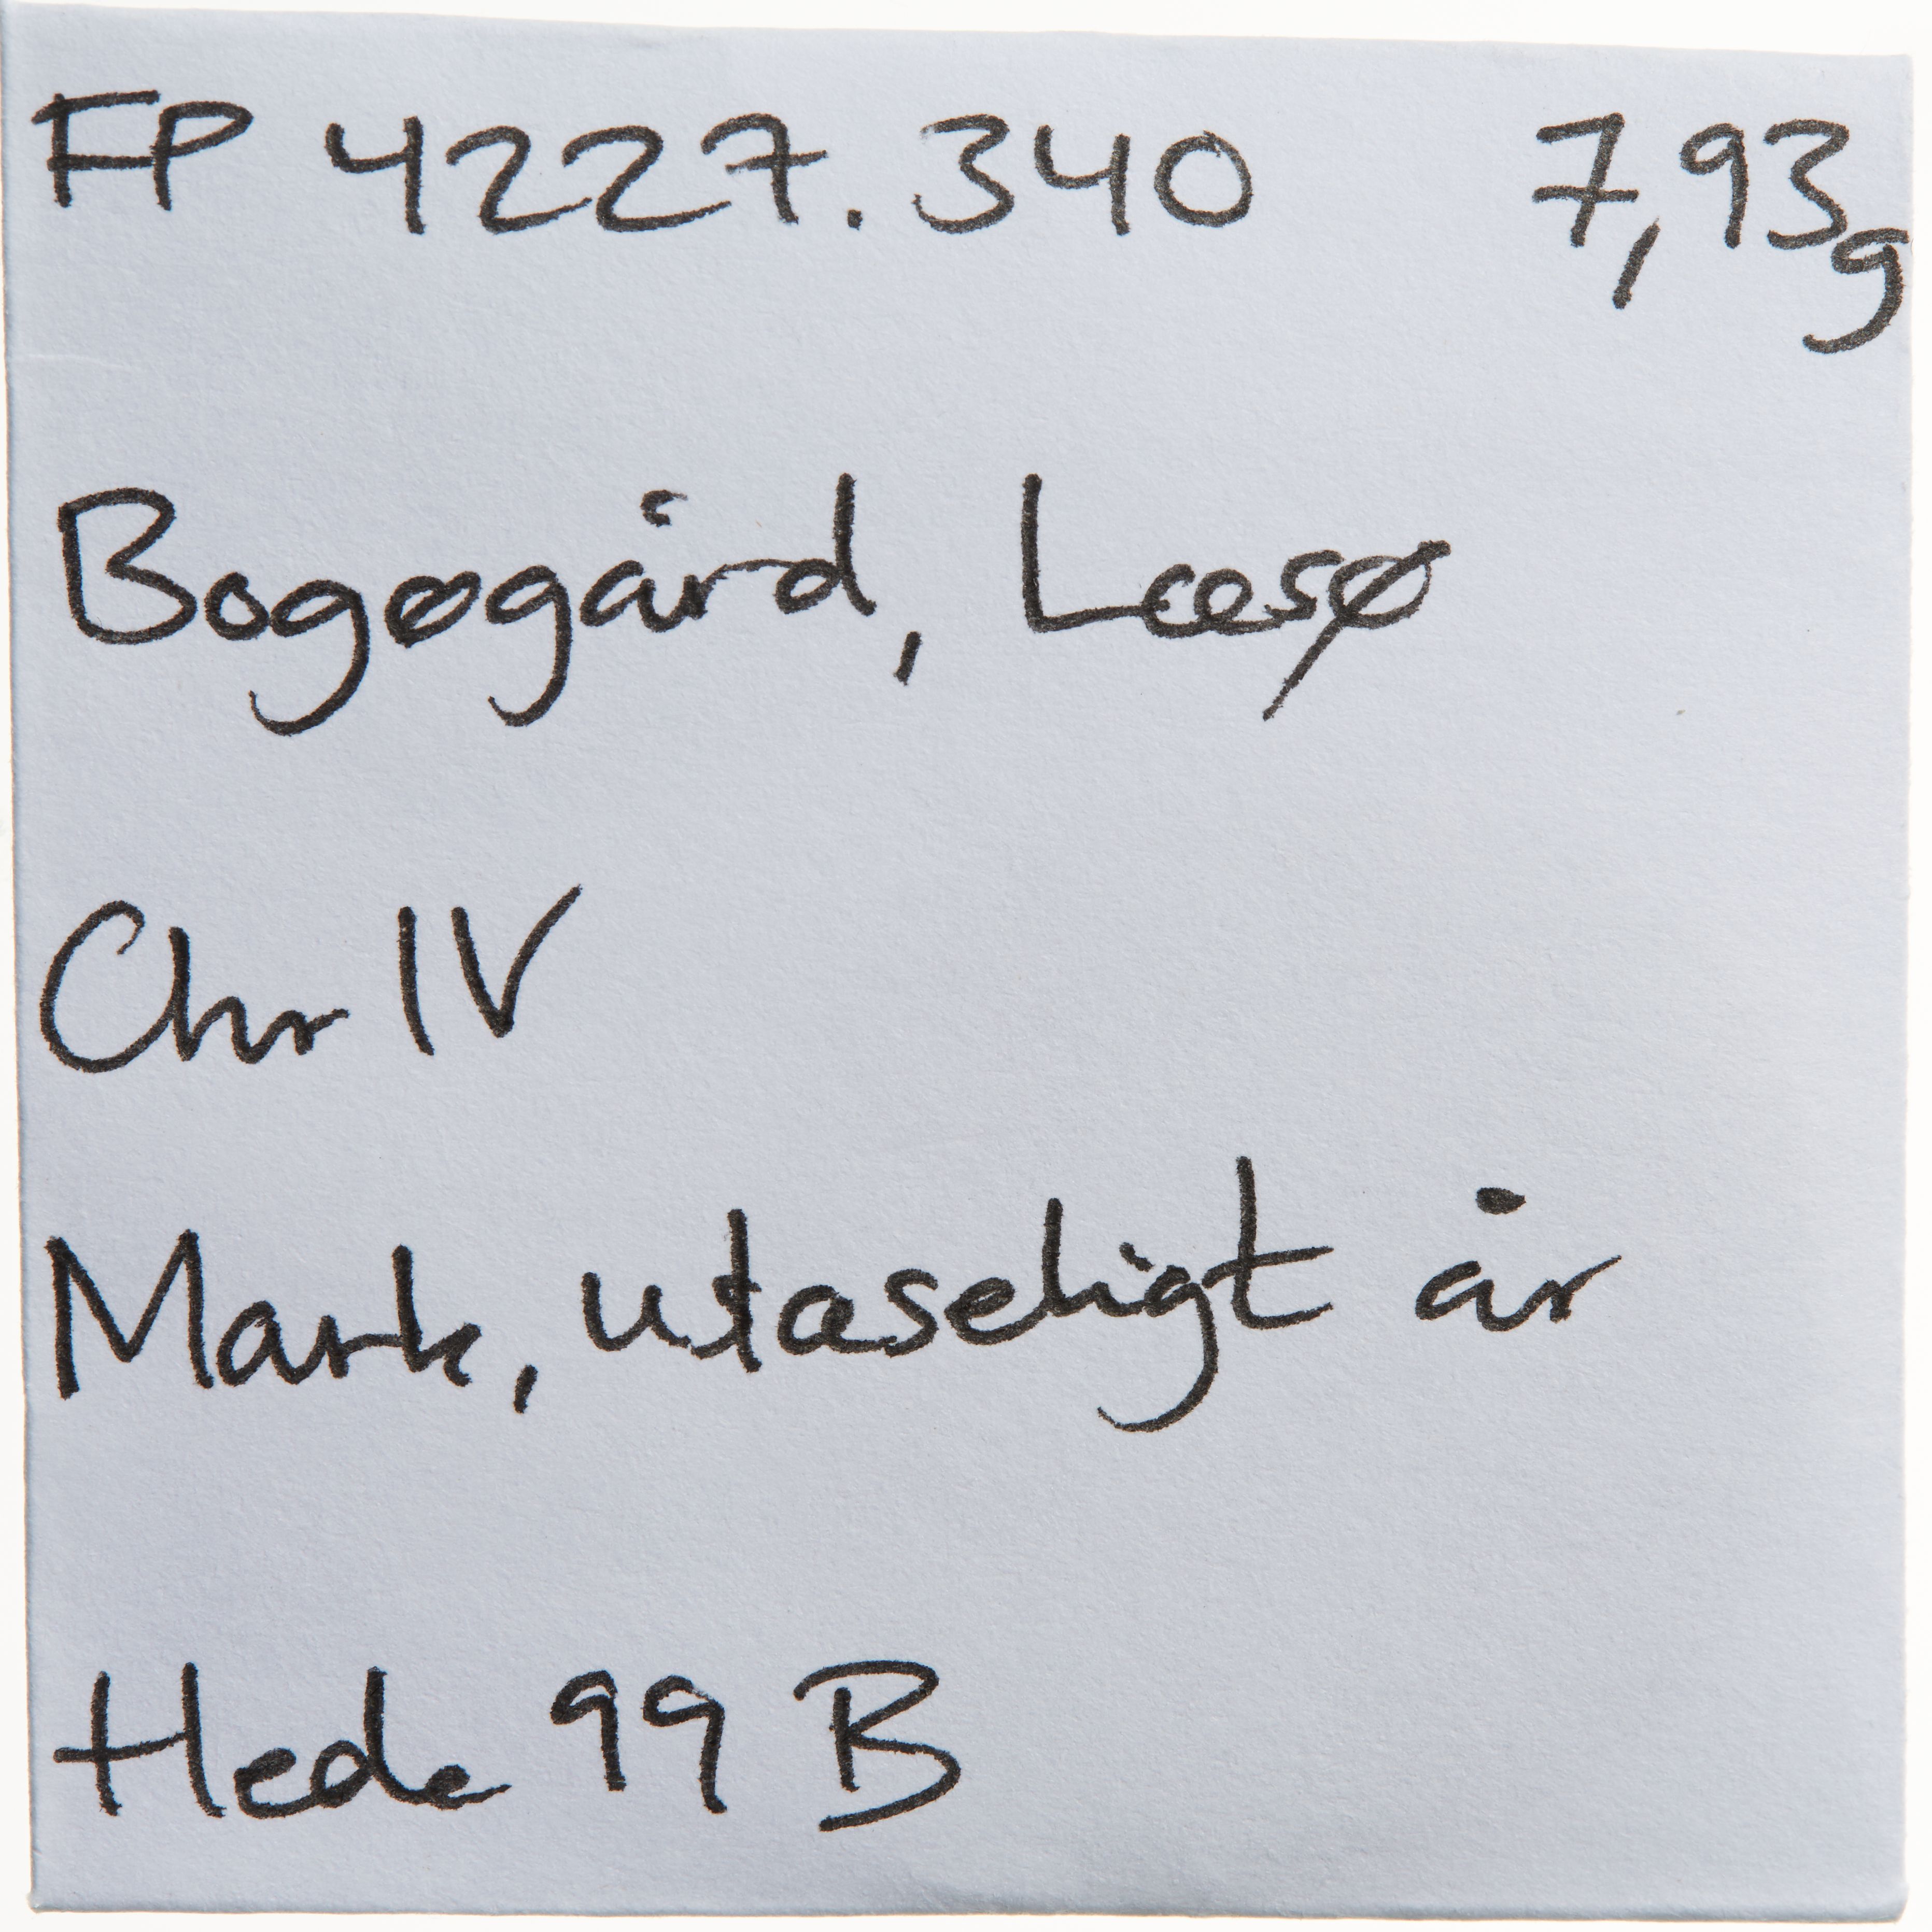 FP 4227.340 7,93g
Bogøgård, Læsø
Chr IV
Mark, ulæseligt år
Hede 99 B